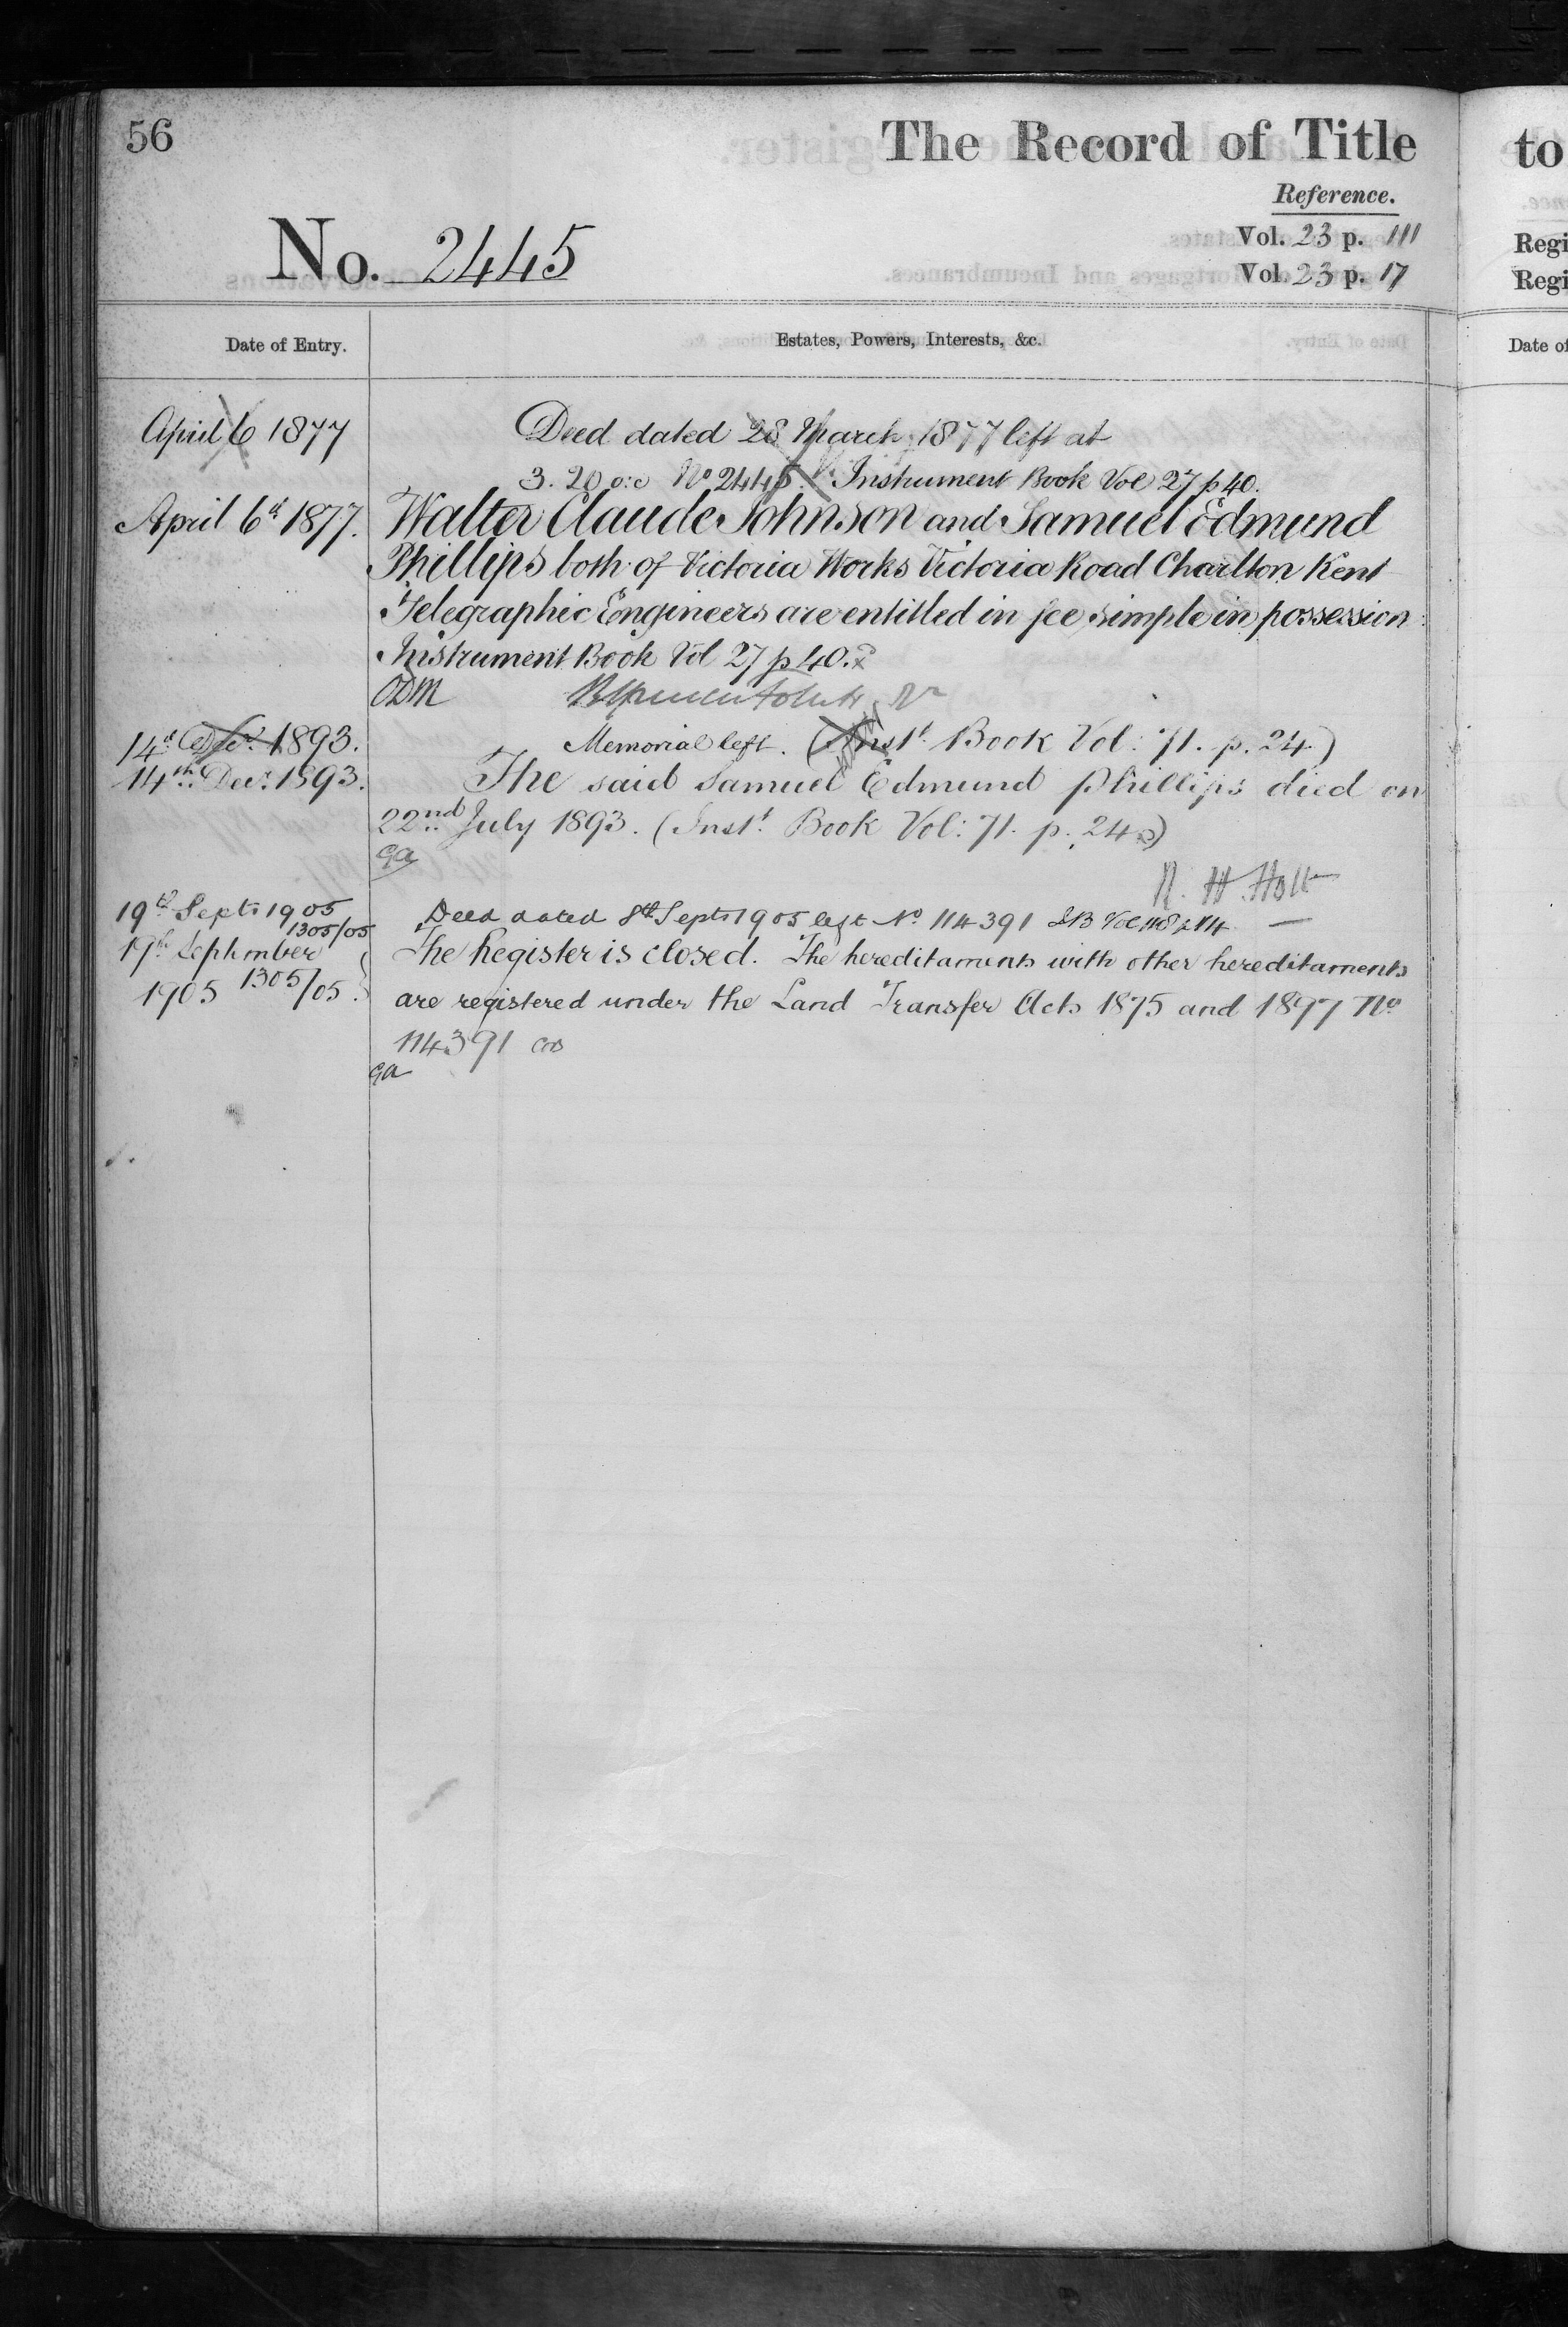 56
The Record of Title
to
Reference.
No. 2445
Vol. 23 p. 111
Vol. 23 p. 17
Regi
Regi
Date of Entry.
Estates, Powers, Interests, &c.
Date of
April 6 1877
Deed dated 28 March 1877 left at
3.20 o:c No 2445. Instrument Book Vol 27 p 40.
April 6th 1877.
Walter Claude Johnson and Samuel Edmund
Phillips both of Victoria Works Victoria Road Charlton Kent
Telegraphic Engineers are entitled in fee simple in possession
Instrument Book Vol 27 p 40.
ODM
14th Decr 1893.
Memorial left. (Inst. Book Vol: 71. p. 24.)
14th Decr 1893.
The said Samuel Edmund Phillips died on
22nd July 1893. (Inst. Book Vol: 71. p. 24)
GA
R. H. Holt
19th Sept 1905
1305/05
Deed dated 8th Sept 1905 left No 114391 IB Vol 118 p 114
19th September
1905 1305/05.
The Register is closed. The hereditaments with other hereditaments
are registered under the Land Transfer Acts 1875 and 1897 No
114391
GA